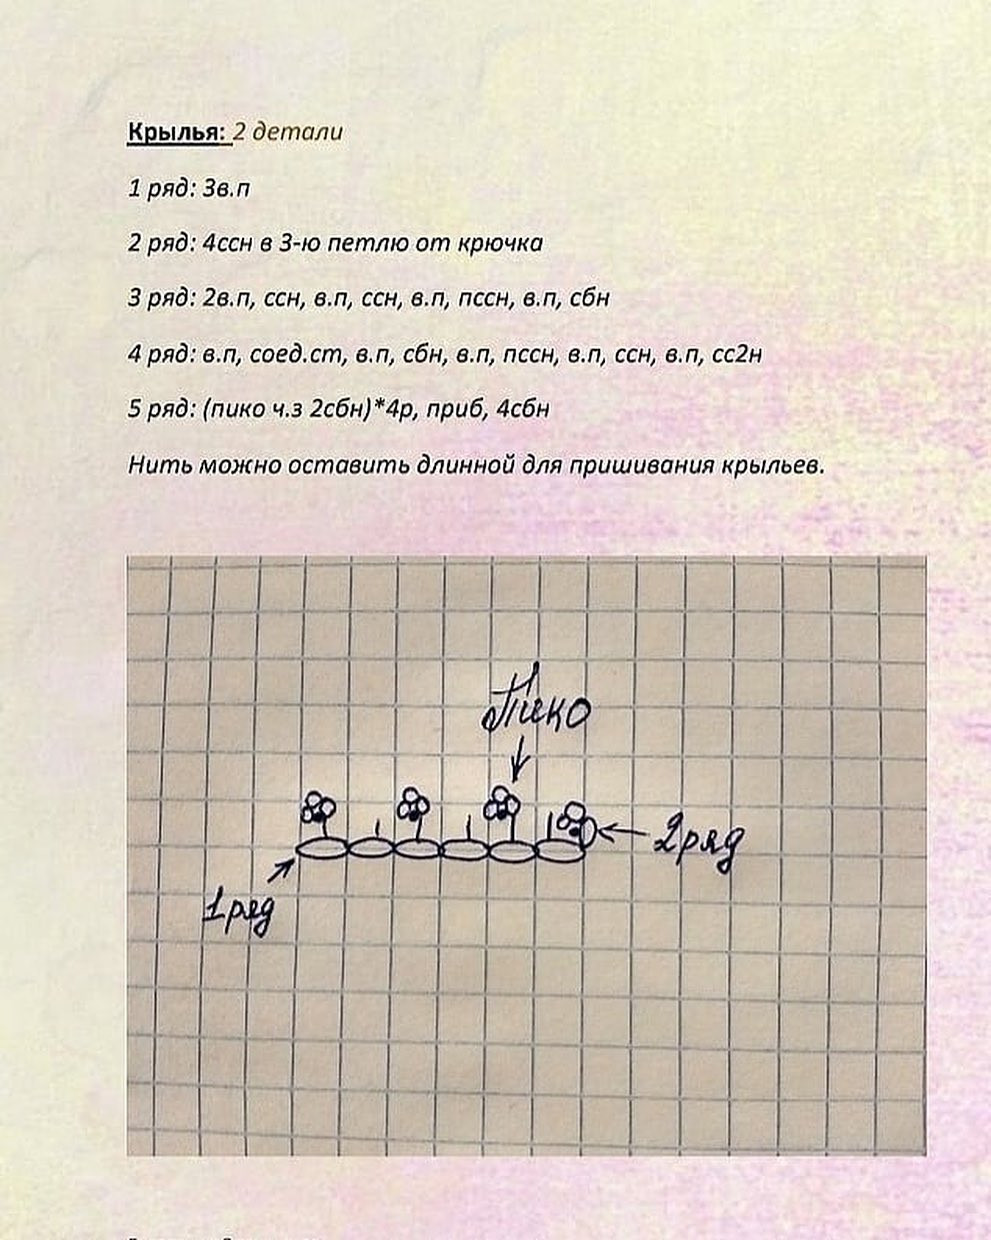 Крылья: 2 детали
1 ряд: 3в.п
2 ряд: 4ссн в 3-ю петлю от крючка
3 ряд: 2в.п, ссн, в.п, ссн, в.п, пссн, в.п, сбн
4 ряд: в.п, соед.ст, в.п, сбн, в.п, пссн, в.п, ссн, в.п, сс2н
5 ряд: (пико ч.з 2сбн)*4р, приб, 4сбн
Нить можно оставить длинной для пришивания крыльев.
Пико
2 ряд
1 ряд